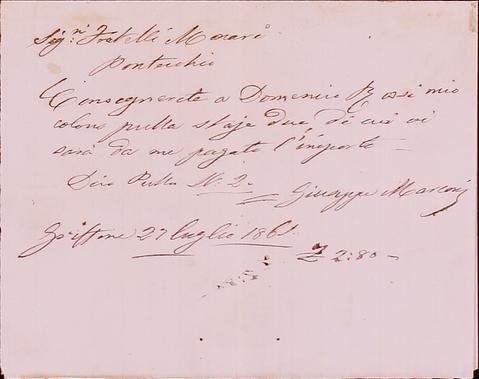 Sig.ri Fratelli Morari
Pontecchio
Consegnerete a Domenico Rossi mio
colono pulla staje due, di cui vi
sarà da me pagato l'importo
Dico Pulla N: 2.
Giuseppe Marconi
Griffone 27 luglio 1861.
£ 2:80